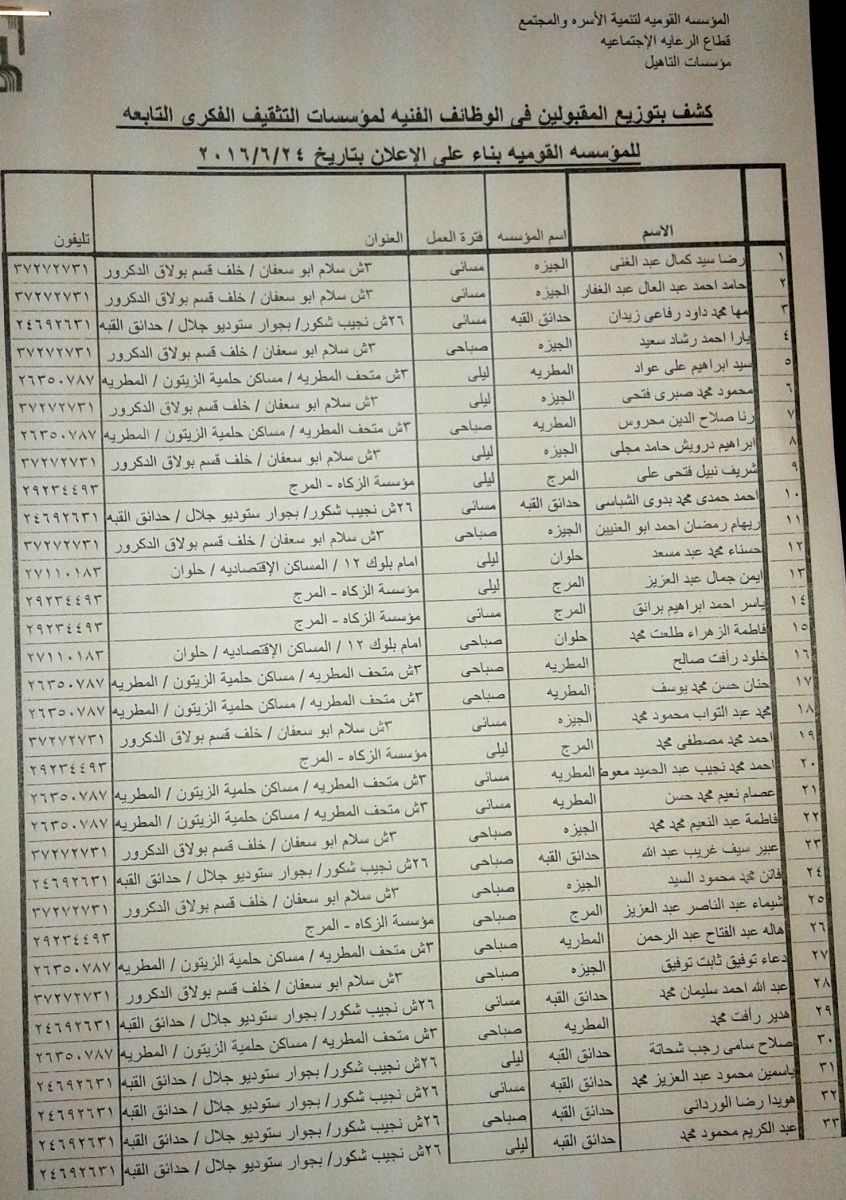 المؤسسه القوميه لتنمية الأسره والمجتمع
قطاع الرعايه الإجتماعيه
مؤسسات التاهيل
كشف بتوزيع المقبولين فى الوظائف الفنيه لمؤسسات التثقيف الفكرى التابعه
للمؤسسه القوميه بناء على الإعلان بتاريخ ٢٠١٦/٦/٢٤
الاسم اسم المؤسسه فترة العمل العنوان تليفون
١ رضا سيد كمال عبد الغنى الجيزه مسائى ٣ش سلام ابو سعفان / خلف قسم بولاق الدكرور ٣٧٢٧٢٧٣١
٢ حامد احمد عبد العال عبد الغفار الجيزه مسائى ٣ش سلام ابو سعفان / خلف قسم بولاق الدكرور ٣٧٢٧٢٧٣١
٣ مها محمد داود رفاعى زيدان حدائق القبه مسائى ٢٦ش نجيب شكور/ بجوار ستوديو جلال / حدائق القبه ٢٤٦٩٢٦٣١
٤ يارا احمد رشاد سعيد الجيزه صباحى ٣ش سلام ابو سعفان / خلف قسم بولاق الدكرور ٣٧٢٧٢٧٣١
٥ سيد ابراهيم على عواد المطريه ليلى ٣ش متحف المطريه / مساكن حلمية الزيتون / المطريه ٢٦٣٥٠٧٨٧
٦ محمود محمد صبرى فتحى الجيزه ليلى ٣ش سلام ابو سعفان / خلف قسم بولاق الدكرور ٣٧٢٧٢٧٣١
٧ رنا صلاح الدين محروس المطريه صباحى ٣ش متحف المطريه / مساكن حلمية الزيتون / المطريه ٢٦٣٥٠٧٨٧
٨ ابراهيم درويش حامد مجلى الجيزه ليلى ٣ش سلام ابو سعفان / خلف قسم بولاق الدكرور ٣٧٢٧٢٧٣١
٩ شريف نبيل فتحى على المرج ليلى مؤسسة الزكاه - المرج ٢٩٢٣٤٤٩٣
١٠ احمد حمدى محمد بدوى الشباسى حدائق القبه مسائى ٢٦ش نجيب شكور/ بجوار ستوديو جلال / حدائق القبه ٢٤٦٩٢٦٣١
١١ ريهام رمضان احمد ابو العنيين الجيزه صباحى ٣ش سلام ابو سعفان / خلف قسم بولاق الدكرور ٣٧٢٧٢٧٣١
١٢ حسناء محمد عبد مسعد حلوان ليلى امام بلوك ١٢ / المساكن الإقتصاديه / حلوان ٢٧١١٠١٨٣
١٣ ايمن جمال عبد العزيز المرج ليلى مؤسسة الزكاه - المرج ٢٩٢٣٤٤٩٣
١٤ ياسر احمد ابراهيم برانق المرج مسائى مؤسسة الزكاه - المرج ٢٩٢٣٤٤٩٣
١٥ فاطمة الزهراء طلعت محمد حلوان صباحى امام بلوك ١٢ / المساكن الإقتصاديه / حلوان ٢٧١١٠١٨٣
١٦ خلود رأفت صالح المطريه صباحى ٣ش متحف المطريه / مساكن حلمية الزيتون / المطريه ٢٦٣٥٠٧٨٧
١٧ حنان حسن محمد يوسف المطريه صباحى ٣ش متحف المطريه / مساكن حلمية الزيتون / المطريه ٢٦٣٥٠٧٨٧
١٨ محمد عبد التواب محمود محمد الجيزه مسائى ٣ش سلام ابو سعفان / خلف قسم بولاق الدكرور ٣٧٢٧٢٧٣١
١٩ احمد محمد مصطفى محمد المرج ليلى مؤسسة الزكاه - المرج ٢٩٢٣٤٤٩٣
٢٠ احمد محمد نجيب عبد الحميد معوض المطريه مسائى ٣ش متحف المطريه / مساكن حلمية الزيتون / المطريه ٢٦٣٥٠٧٨٧
٢١ عصام نعيم محمد حسن المطريه مسائى ٣ش متحف المطريه / مساكن حلمية الزيتون / المطريه ٢٦٣٥٠٧٨٧
٢٢ فاطمة عبد النعيم محمد محمد الجيزه صباحى ٣ش سلام ابو سعفان / خلف قسم بولاق الدكرور ٣٧٢٧٢٧٣١
٢٣ عبير سيف غريب عبد الله حدائق القبه صباحى ٢٦ش نجيب شكور/ بجوار ستوديو جلال / حدائق القبه ٢٤٦٩٢٦٣١
٢٤ فاتن محمد محمود السيد الجيزه صباحى ٣ش سلام ابو سعفان / خلف قسم بولاق الدكرور ٣٧٢٧٢٧٣١
٢٥ شيماء عبد الناصر عبد العزيز المرج صباحى مؤسسة الزكاه - المرج ٢٩٢٣٤٤٩٣
٢٦ هاله عبد الفتاح عبد الرحمن المطريه صباحى ٣ش متحف المطريه / مساكن حلمية الزيتون / المطريه ٢٦٣٥٠٧٨٧
٢٧ دعاء توفيق ثابت توفيق الجيزه صباحى ٣ش سلام ابو سعفان / خلف قسم بولاق الدكرور ٣٧٢٧٢٧٣١
٢٨ عبد الله احمد سليمان محمد حدائق القبه مسائى ٢٦ش نجيب شكور/ بجوار ستوديو جلال / حدائق القبه ٢٤٦٩٢٦٣١
٢٩ هدير رأفت محمد المطريه صباحى ٣ش متحف المطريه / مساكن حلمية الزيتون / المطريه ٢٦٣٥٠٧٨٧
٣٠ صلاح سامى رجب شحاتة حدائق القبه ليلى ٢٦ش نجيب شكور/ بجوار ستوديو جلال / حدائق القبه ٢٤٦٩٢٦٣١
٣١ ياسمين محمود عبد العزيز محمد حدائق القبه مسائى ٢٦ش نجيب شكور/ بجوار ستوديو جلال / حدائق القبه ٢٤٦٩٢٦٣١
٣٢ هويدا رضا الوردانى حدائق القبه صباحى ٢٦ش نجيب شكور/ بجوار ستوديو جلال / حدائق القبه ٢٤٦٩٢٦٣١
٣٣ عبد الكريم محمود محمد حدائق القبه ليلى ٢٦ش نجيب شكور/ بجوار ستوديو جلال / حدائق القبه ٢٤٦٩٢٦٣١